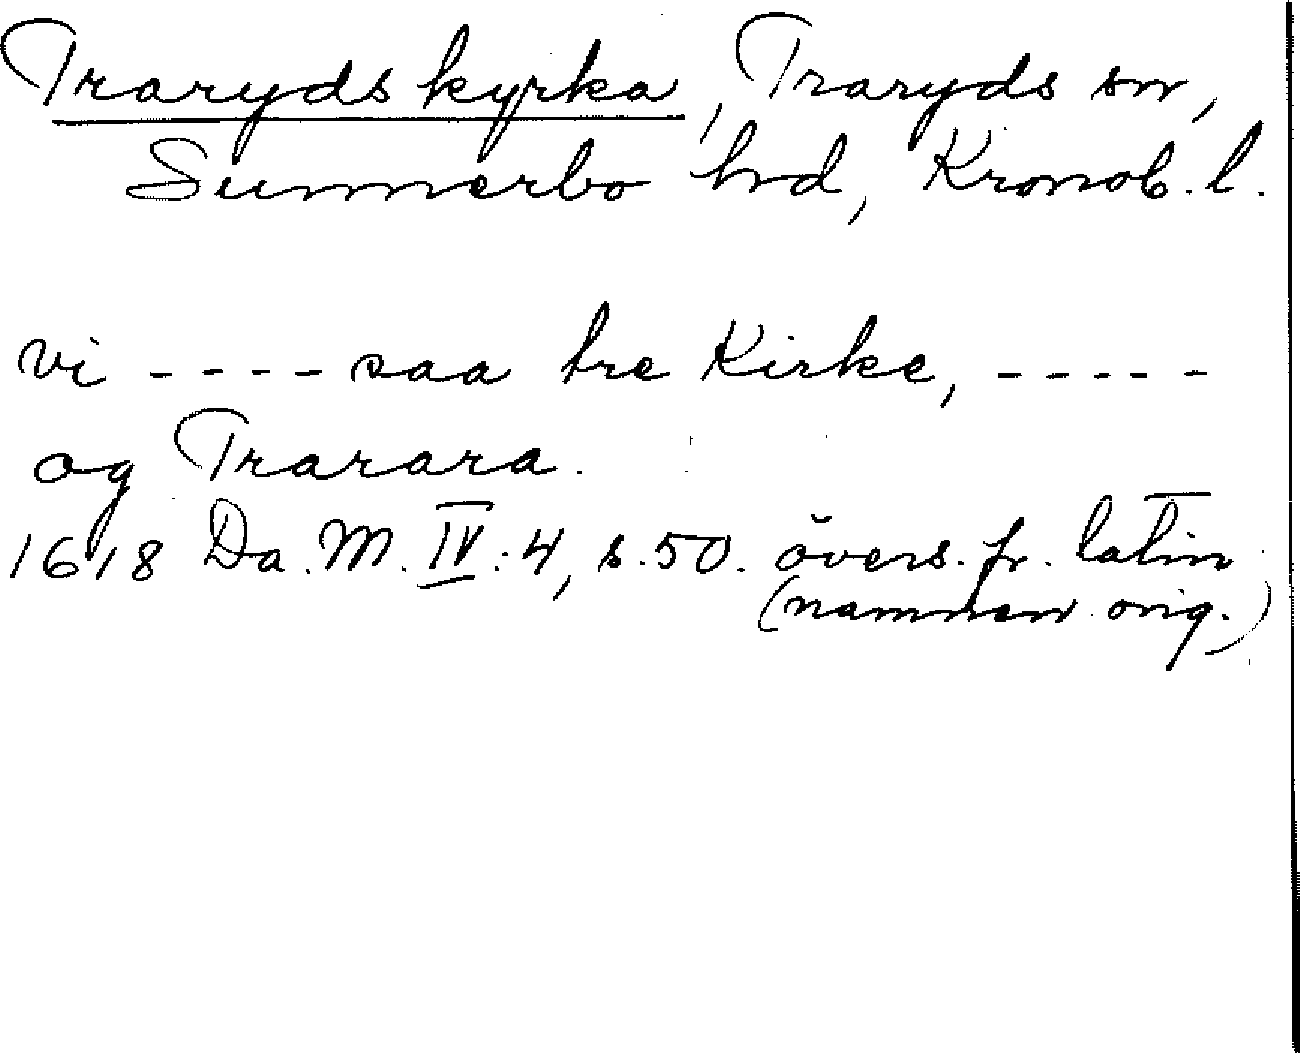 Traryds kyrka, Traryds sn,
Sunnerbo hrd, Kronob. l.
vi ---- saa tre Kirke, -----
og Trarara.
1618 Da. M. IV: 4, s. 50. övers. fr. latin
(namnen orig.)